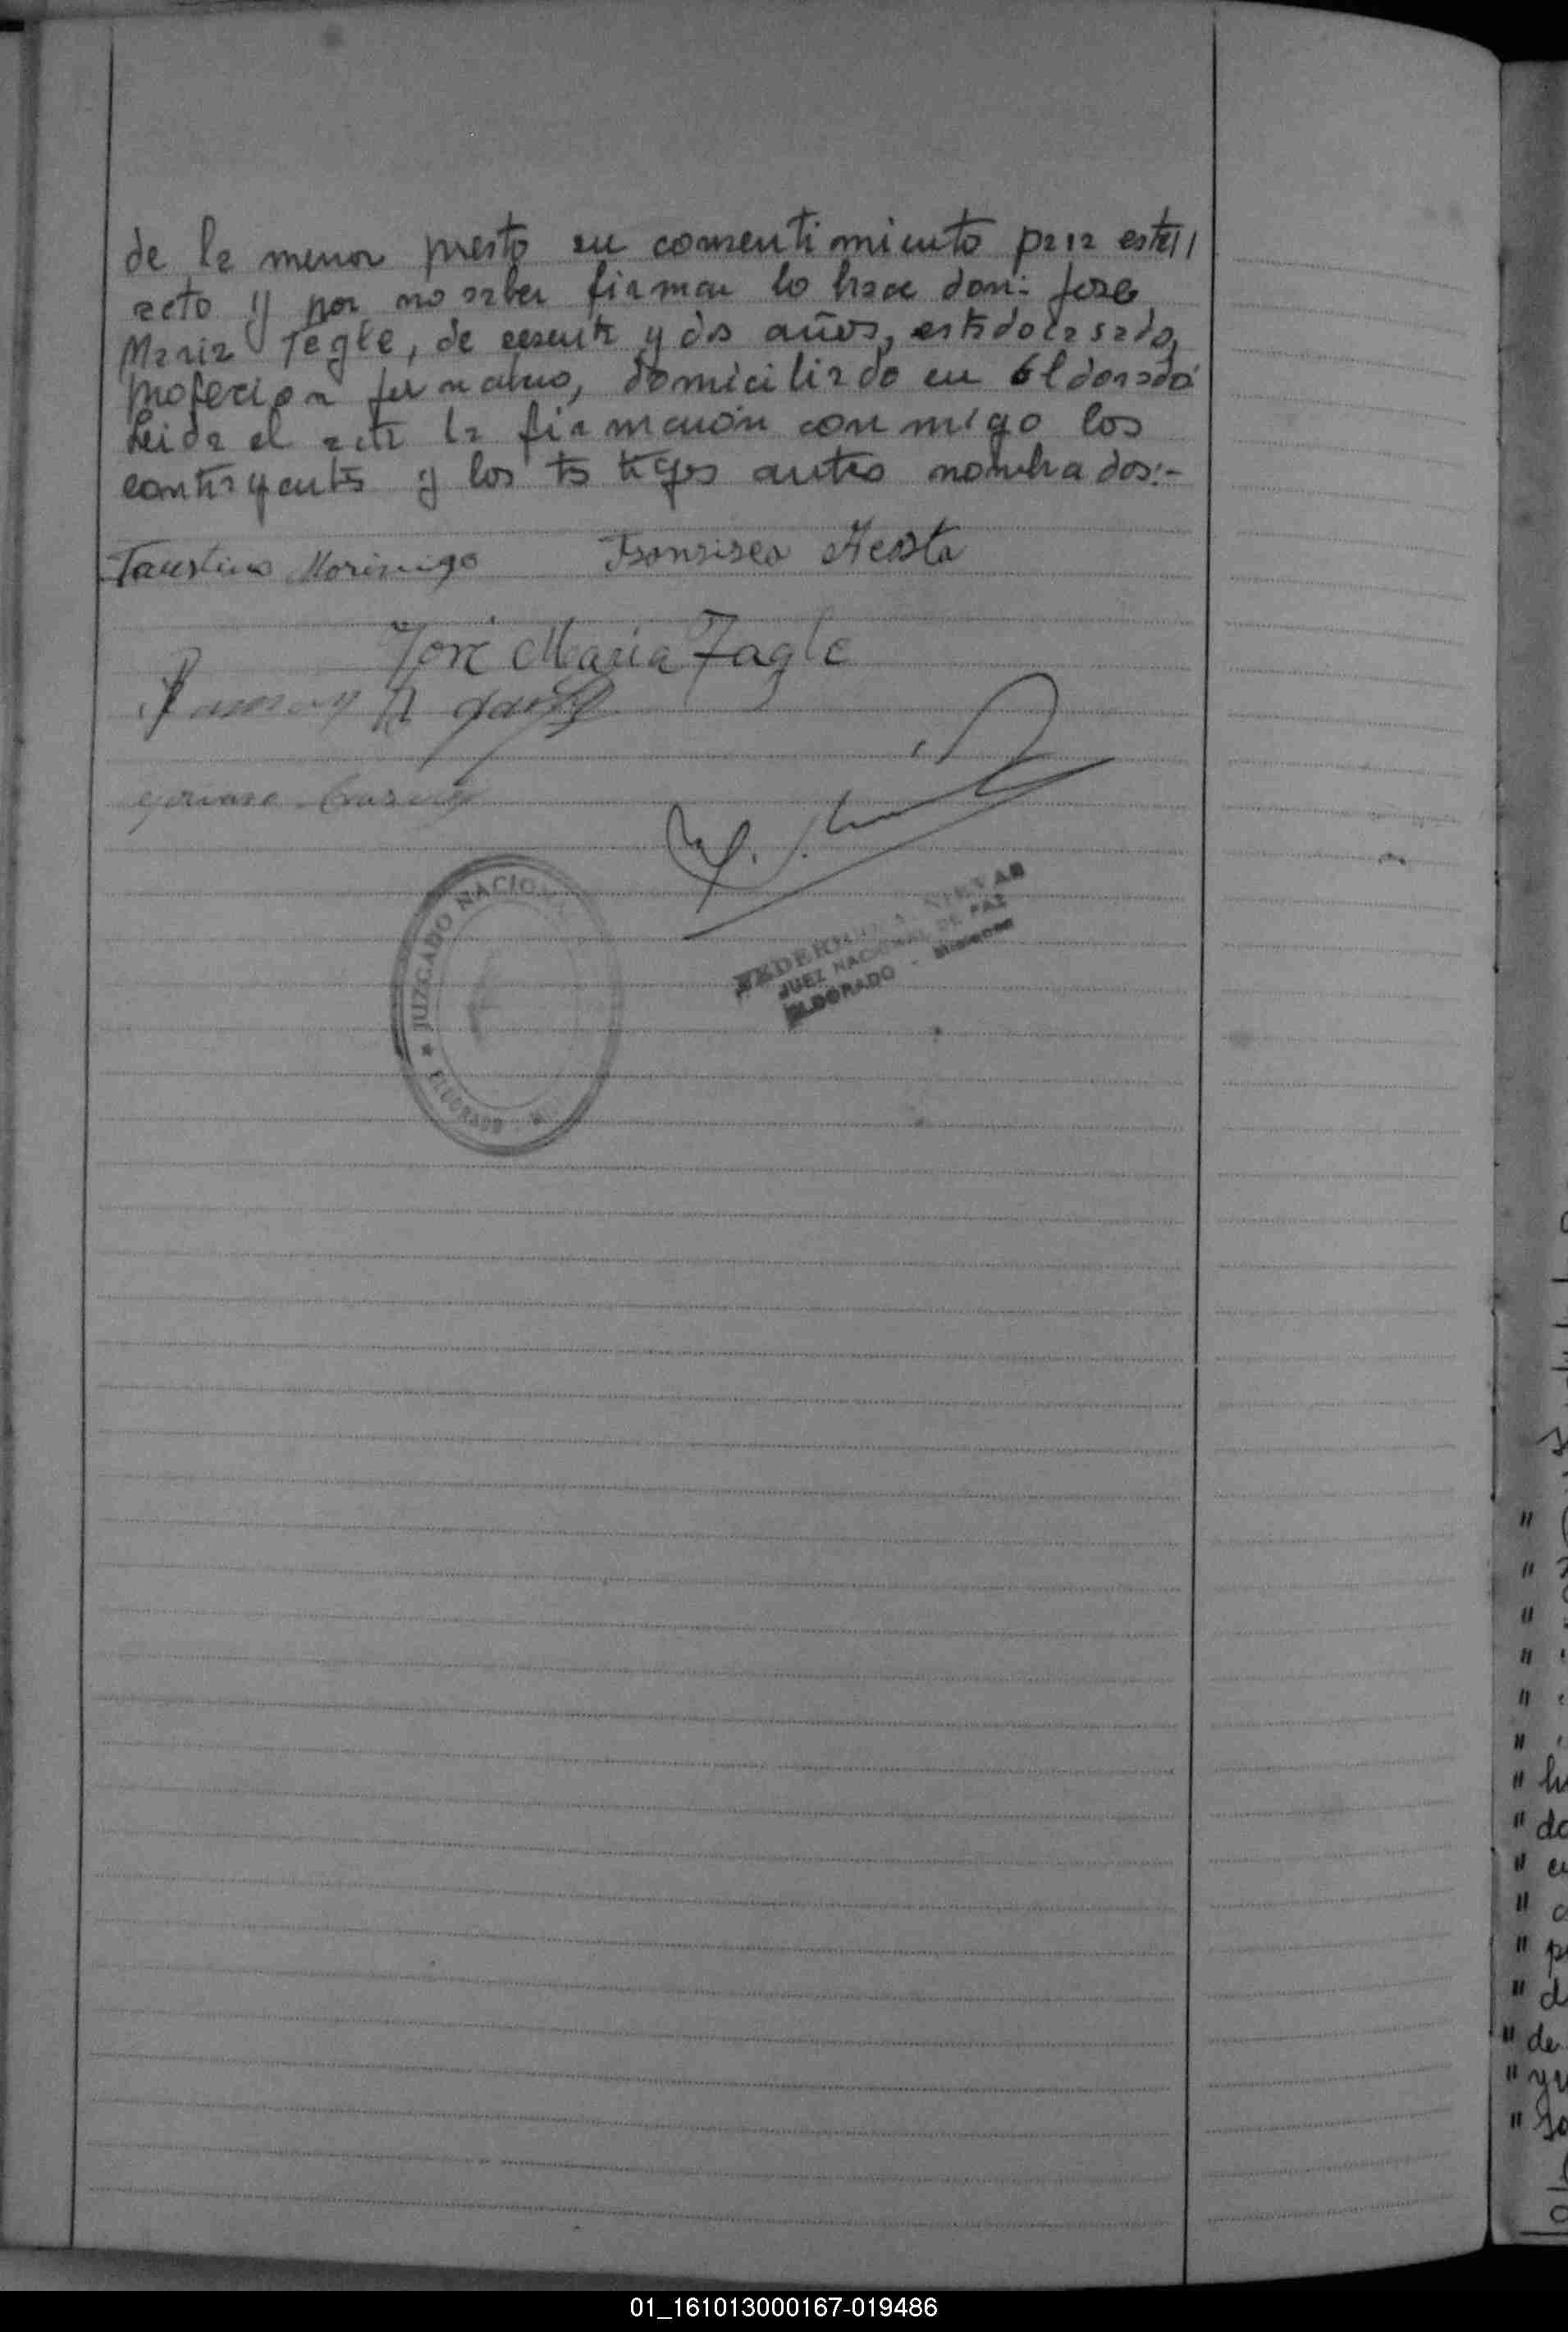 de la menor presto su consentimiento para este//
acto y por no saber firmar lo hace don: Jose
Maria Tagle, de sesenta y dos años, estado casado,
profecion jornalero, domiciliado en Eldorado
Leida el acta la firmaron conmigo los
contrayentes y los testigos antes nombrados:-
Faustino Morinigo Fransisca Acosta
José Maria Tagle
Ramon A
JUZGADO NACIONAL
ELDORADO
JUEZ NACIONAL DE PAZ
ELDORADO - Misiones
" 
"
"
"
"
"
"
" do
"
"
"
"
" de
"
"
01_161013000167-019486